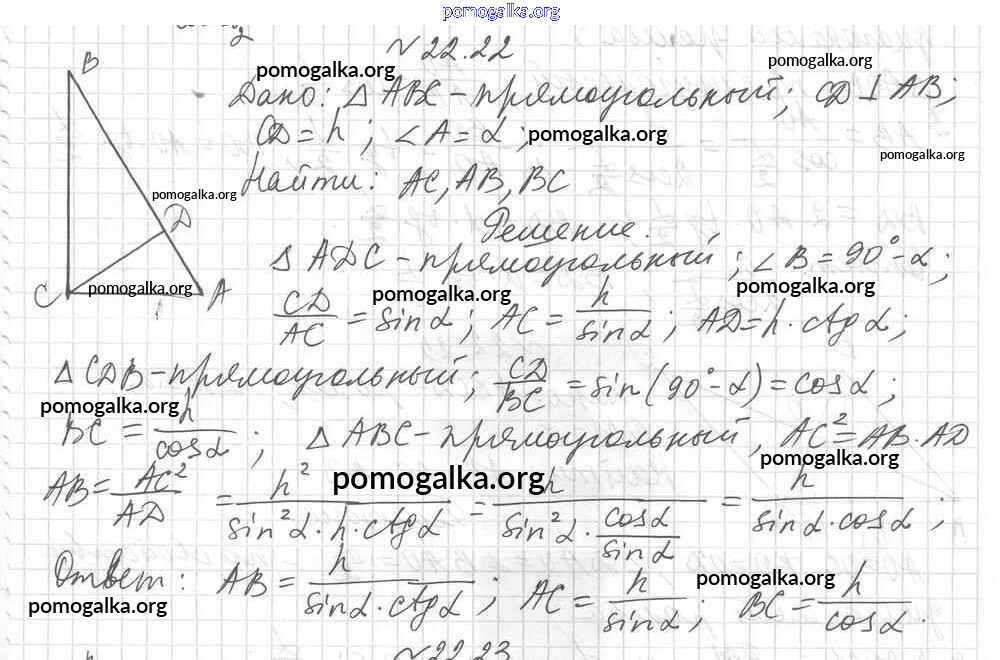 pomogalka.org
№ 22.22
B
pomogalka.org
pomogalka.org
Дано: △ ABC - прямоугольный; CD ⊥ AB;
CD = h; ∠A = α; pomogalka.org
pomogalka.org
Найти: AC, AB, BC
pomogalka.org
D
Решение.
△ ADC - прямоугольный; ∠B = 90° - α;
C pomogalka.org A
pomogalka.org
pomogalka.org
CD/AC = sin α; AC = h/sin α; AD = h · ctg α;
△ CDB - прямоугольный; CD/BC = sin(90° - α) = cos α;
pomogalka.org
BC = h/cos α; △ ABC - прямоугольный, AC² = AB · AD
pomogalka.org
pomogalka.org
AB = AC²/AD = h²/(sin²α · h · ctg α) = h/(sin²α · cos α/sin α) = h/(sin α · cos α);
Ответ: AB = h/(sin α · ctg α); AC = h/sin α; BC = h/cos α.
pomogalka.org
pomogalka.org
№ 22.23